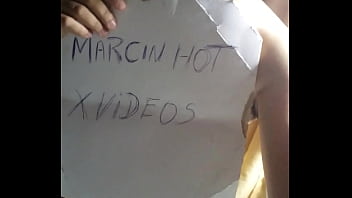 MARCIN HOT
XVIDEOS